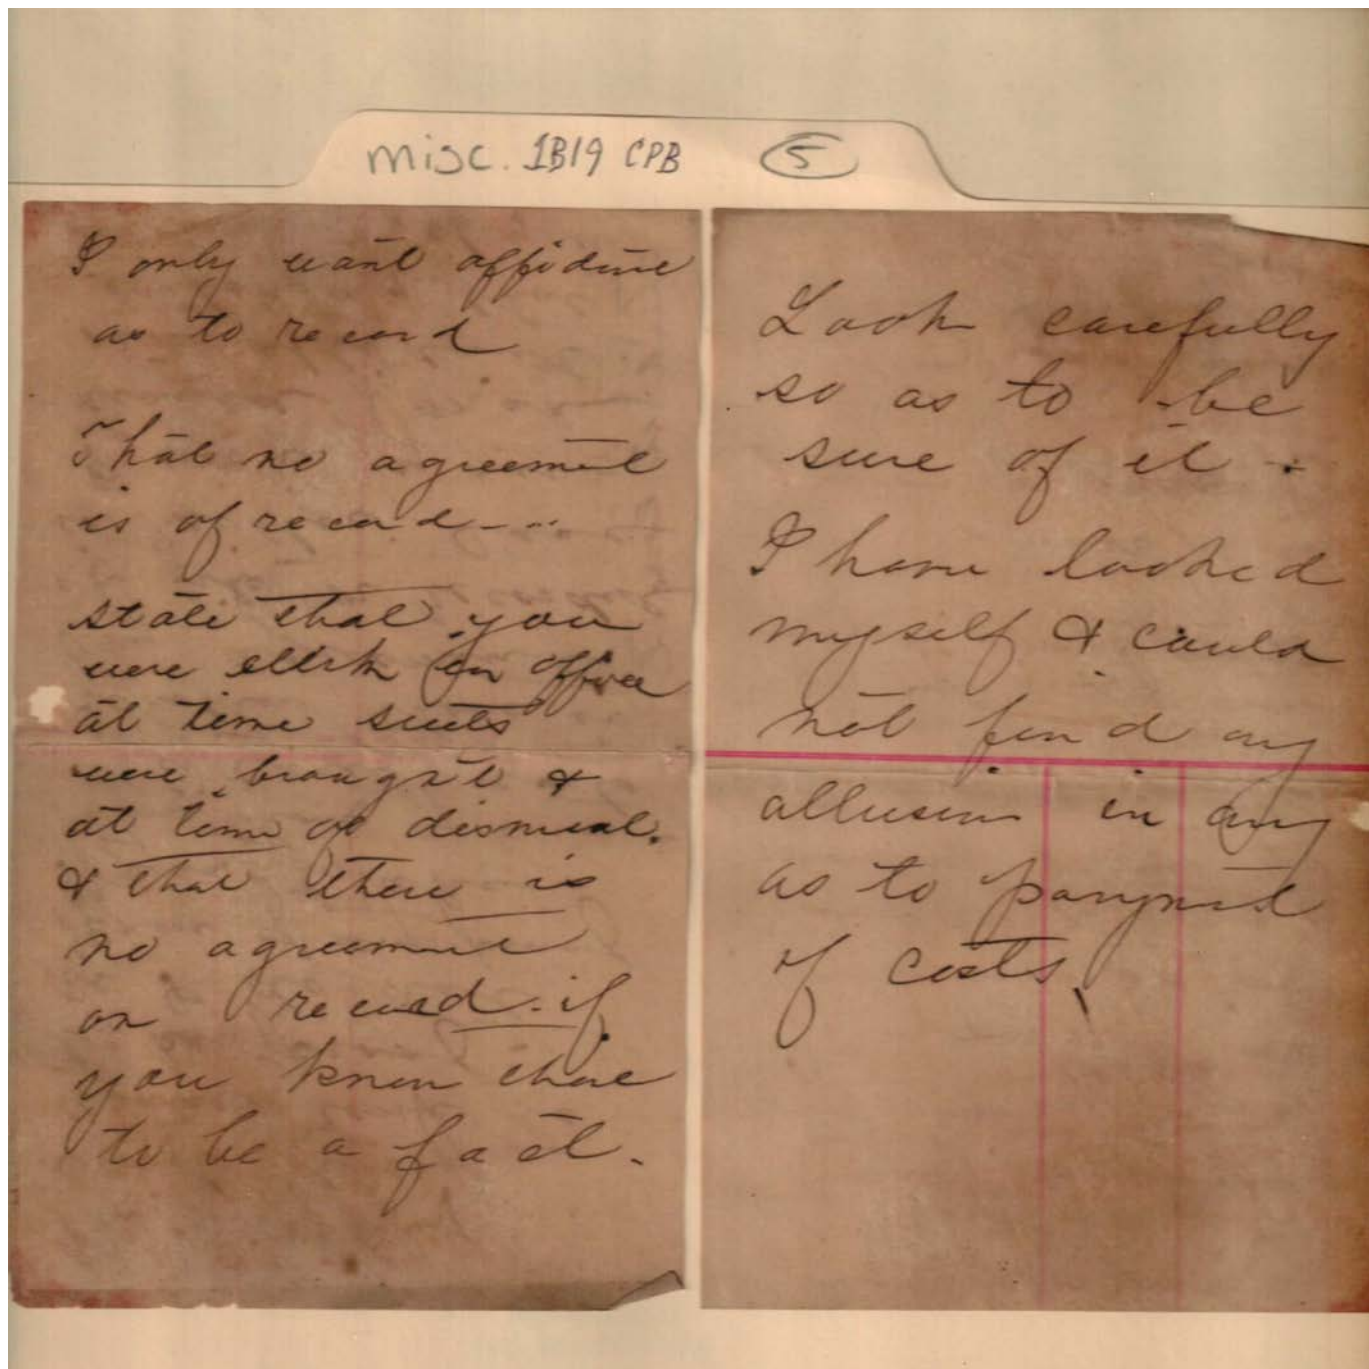 misc. 1B19 CPB 5
I only want affidavit
as to record
That no agreement
is of record
state that you
were clerk in office
at time suits
were brought &
at time of dismissal.
& that there is
no agreement
on record - if
you know
to be a fact.
Look carefully
so as to be
sure of it.
I have looked
myself & could
not find any
allusion in any
as to payment
of costs.